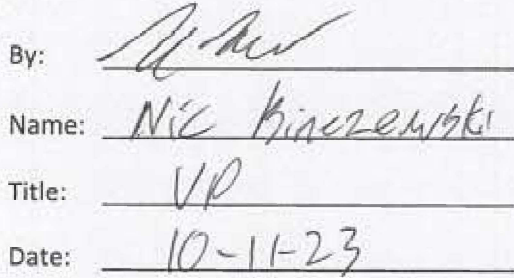 By:
Name: Nic Binczewski
Title: VP
Date: 10-11-23